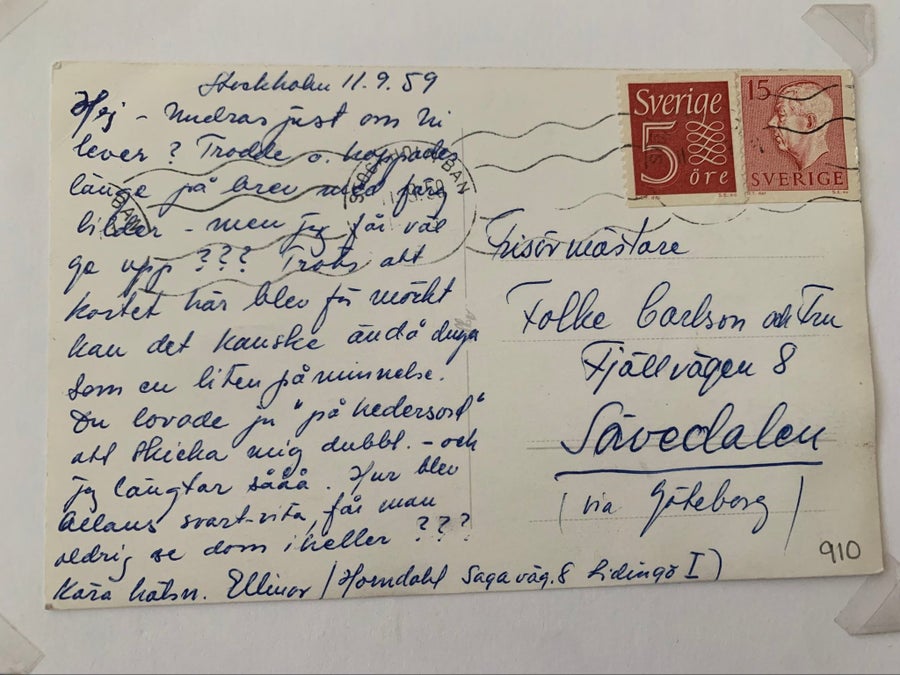 Stockholm 11.9.59
Hej - undras just om ni
lever? Trodde o. hoppades
länge på brev med färg
bilder - men jag får väl
ge upp??? Trots att
kortet här blev för mörkt
kan det kanske ändå duga
som en liten påminnelse.
Du lovade ju "på hedersord"
att skicka mig dubbl. - och
jag längtar sååå. Hur blev
Allans svart-vita, får man
aldrig se dom i heller???
Kära hälsn. Ellinor (Horndahl Sagaväg. 8 Lidingö I)
Sverige
5
öre
15
SVERIGE
BAN
Frisörmästare
Folke Carlson och Fru
Fjällvägen 8
Sävedalen
(via Göteborg)
910